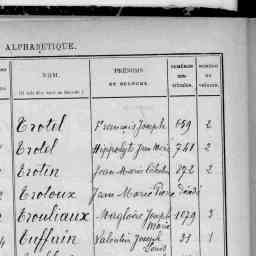 ALPHABÉTIQUE.
NOM. PRÉNOMS ET SECONDS. NUMÉROS NUMÉRO
Trotel François Joseph 659 2
Trotel Hippolyte Jean Marie 741 2
Trotin Jean Marie 872 2
Trotoux Jean Marie Pierre
Trouliaux Magloire Joseph Marie 1079 3
Tuffain Valentin Joseph Louis 31 1